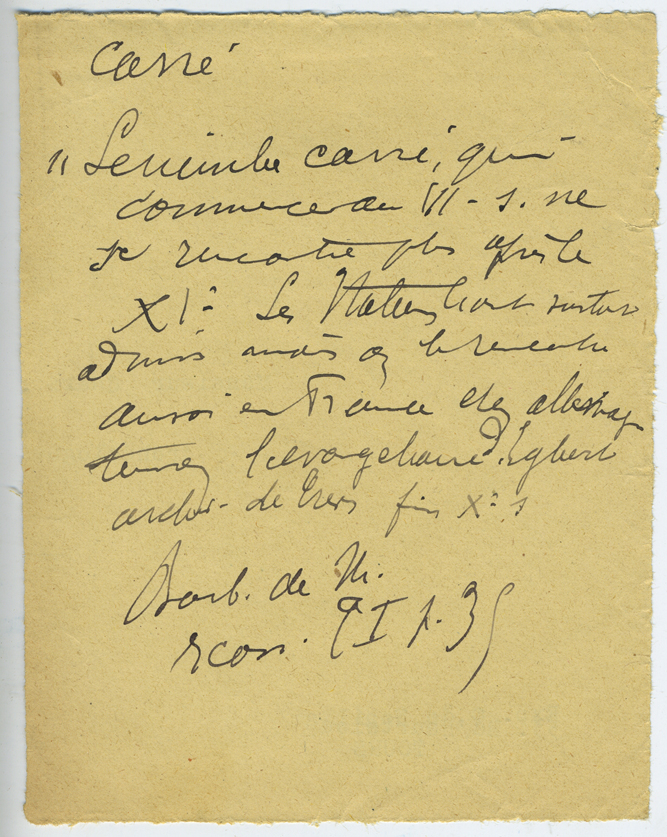 Carré
" Le nimbe carré, qui
commence au VI - s. ne
se rencontre plus après le
XIe Les Italiens l'ont surtout
admis mais on le rencontre
aussi en France et en allemagne
témoin l'evangeliaire d'Egbert
archev. de Treves fin Xe s
Barb. de M.
Icon. T I p. 35